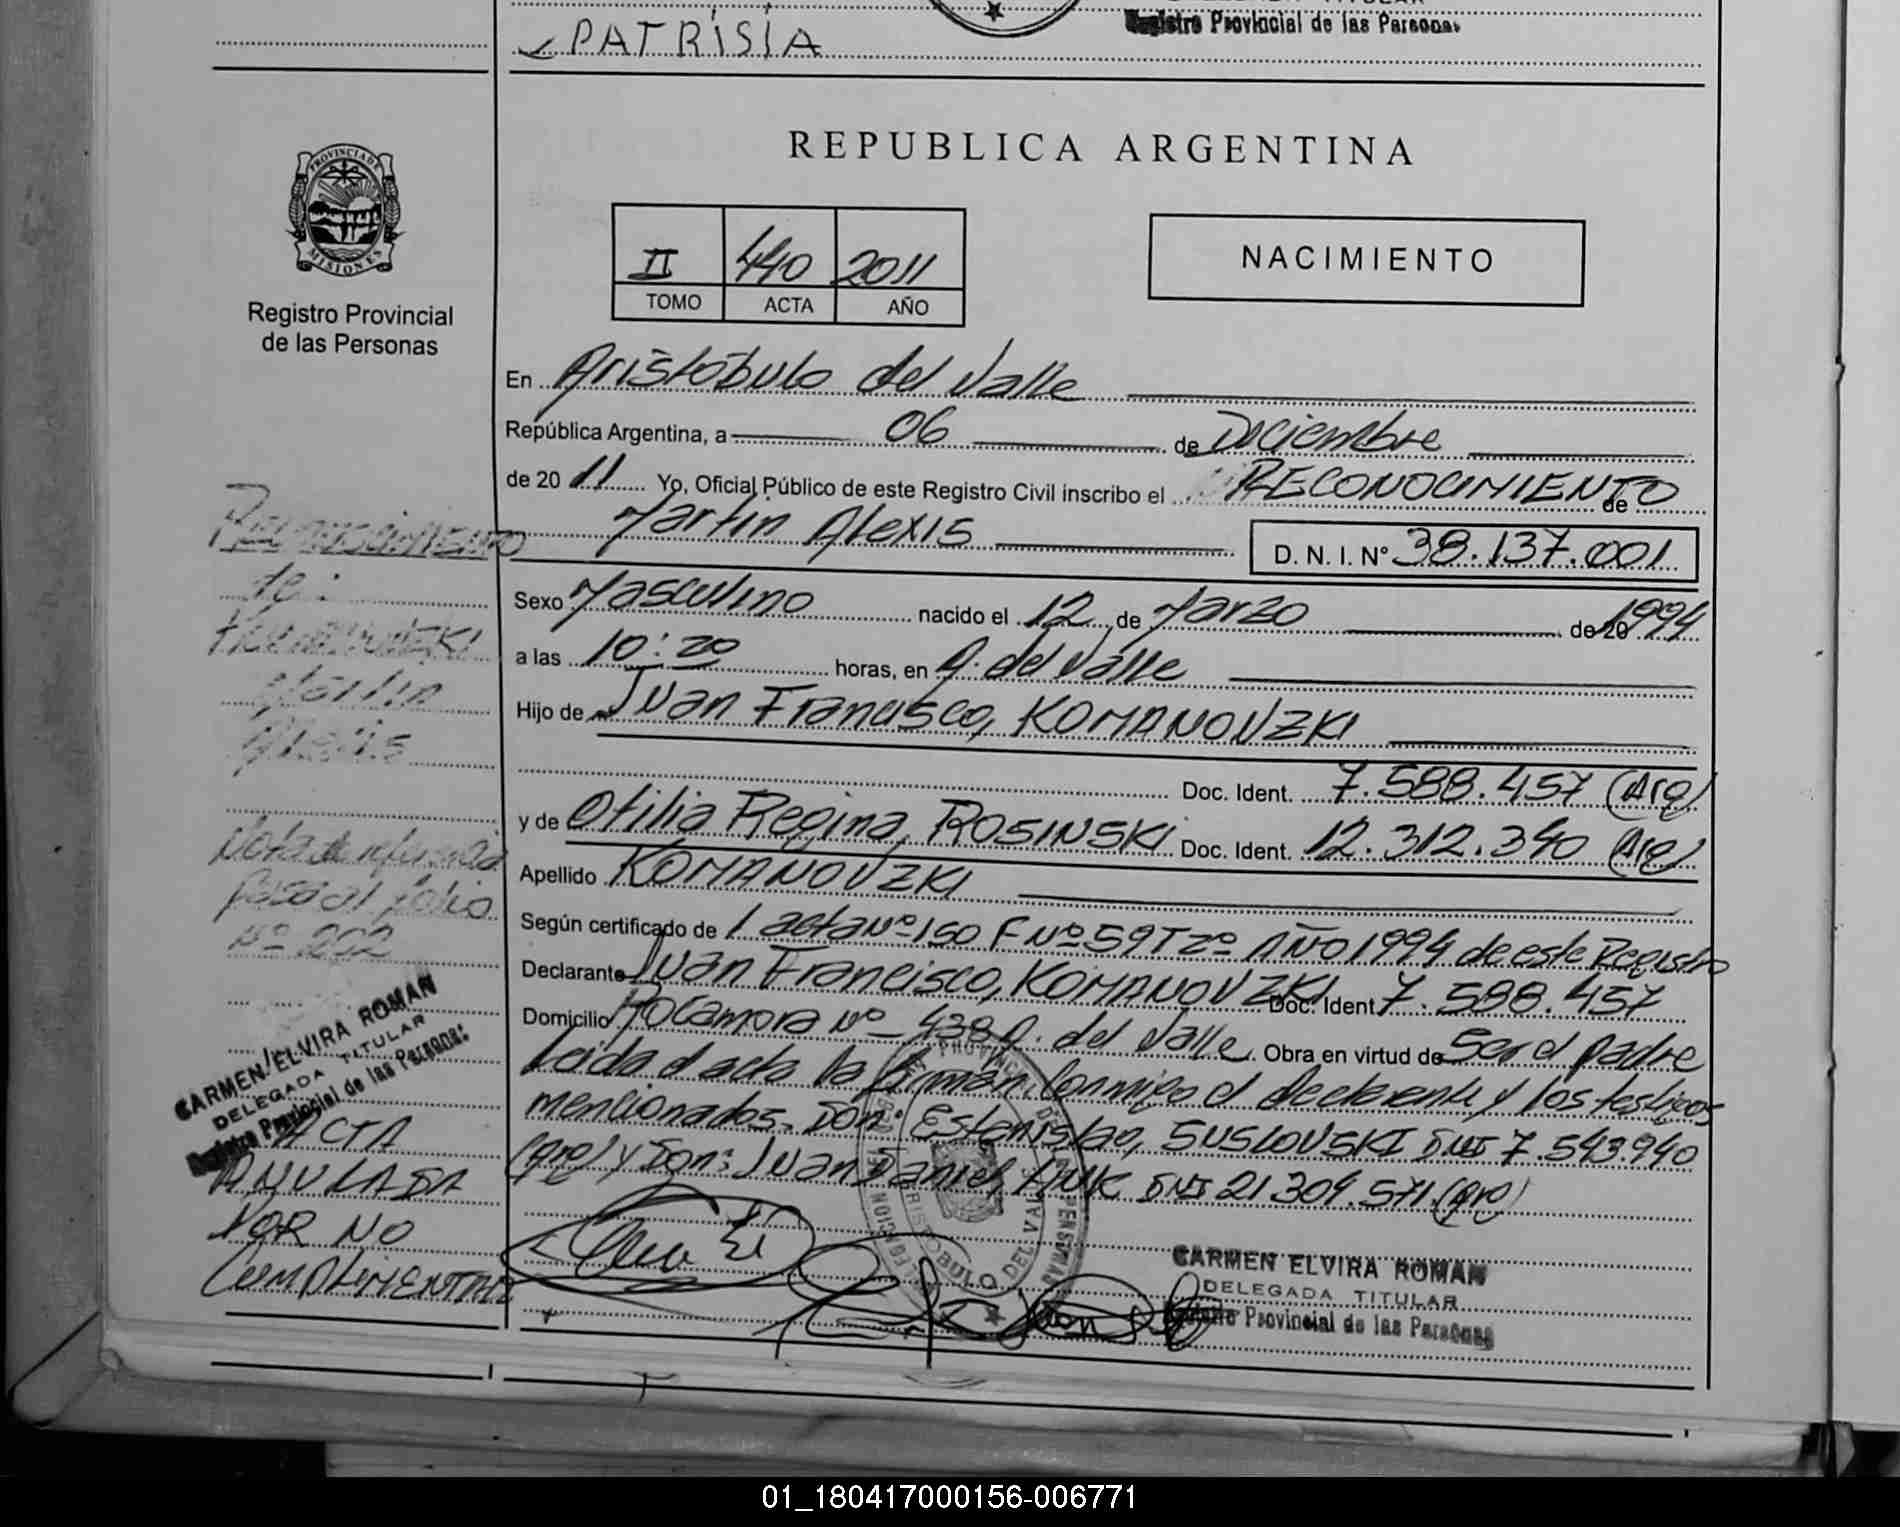 PATRISIA
Registro Provincial de las Personas
REPUBLICA ARGENTINA
PROVINCIA DE
MISIONES
Registro Provincial
de las Personas
II 440 2011
TOMO ACTA AÑO
NACIMIENTO
En Aristóbulo del Valle
República Argentina, a 06 de Diciembre
de 20 11 Yo, Oficial Público de este Registro Civil inscribo el RECONOCIMIENTO de
Martin Alexis D. N. I. Nº 38.137.001
Sexo Masculino nacido el 12 de Marzo de 20 1994
a las 10:20 horas, en A. del Valle
Hijo de Juan Francisco, KOMANOVZKI
Doc. Ident. 7.588.457 (Arg)
y de Otilia Regina, ROSINSKI Doc. Ident. 12.312.340 (Arg)
Apellido KOMANOVZKI
Según certificado de acta Nº 150 F Nº 59 T 2º AÑO 1994 de este Registro
Declarante Juan Francisco, KOMANOVZKI Doc. Ident 7.588.457
Domicilio Rocamora Nº 438 A. del Valle. Obra en virtud de Ser el padre
Leida el acta la firman conmigo el declarante y los testigos
mencionados. Don: Estanislao, SUSLOVSKI DNI 7.543.940
(Arg) y Don: Juan Daniel, HUK DNI 21.309.571 (Arg)
CARMEN ELVIRA ROMAN
DELEGADA TITULAR
Registro Provincial de las Personas
Reconocimiento
de:
KOMANOVZKI
Martin
Alexis
Nota de
pasa al folio
Nº 202
CARMEN ELVIRA ROMAN
DELEGADA TITULAR
Registro Provincial de las Personas
ACTA
ANULADA
POR NO
CUMPLIMENTAR
01_180417000156-006771